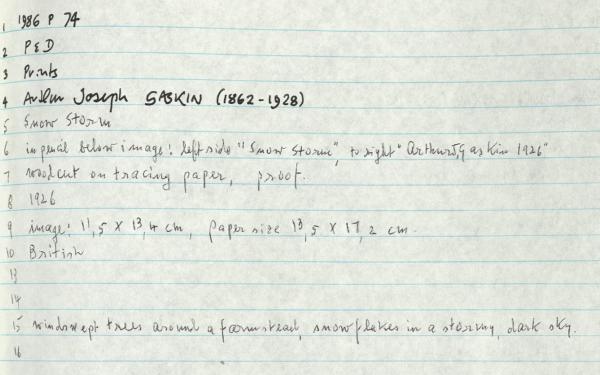 1 1986 P 74
2 P&D
3 Prints
4 Arthur Joseph GASKIN (1862-1928)
5 Snow Storm
6 in pencil below image: left side "Snow Storm", to right "Arthur J Gaskin 1926"
7 woodcut on tracing paper, proof.
8 1926
9 image: 11,5 X 13,4 cm, paper size 13,5 X 17,2 cm.
10 British
13
14
15 windswept trees around a farmstead, snowflakes in a stormy, dark sky.
16